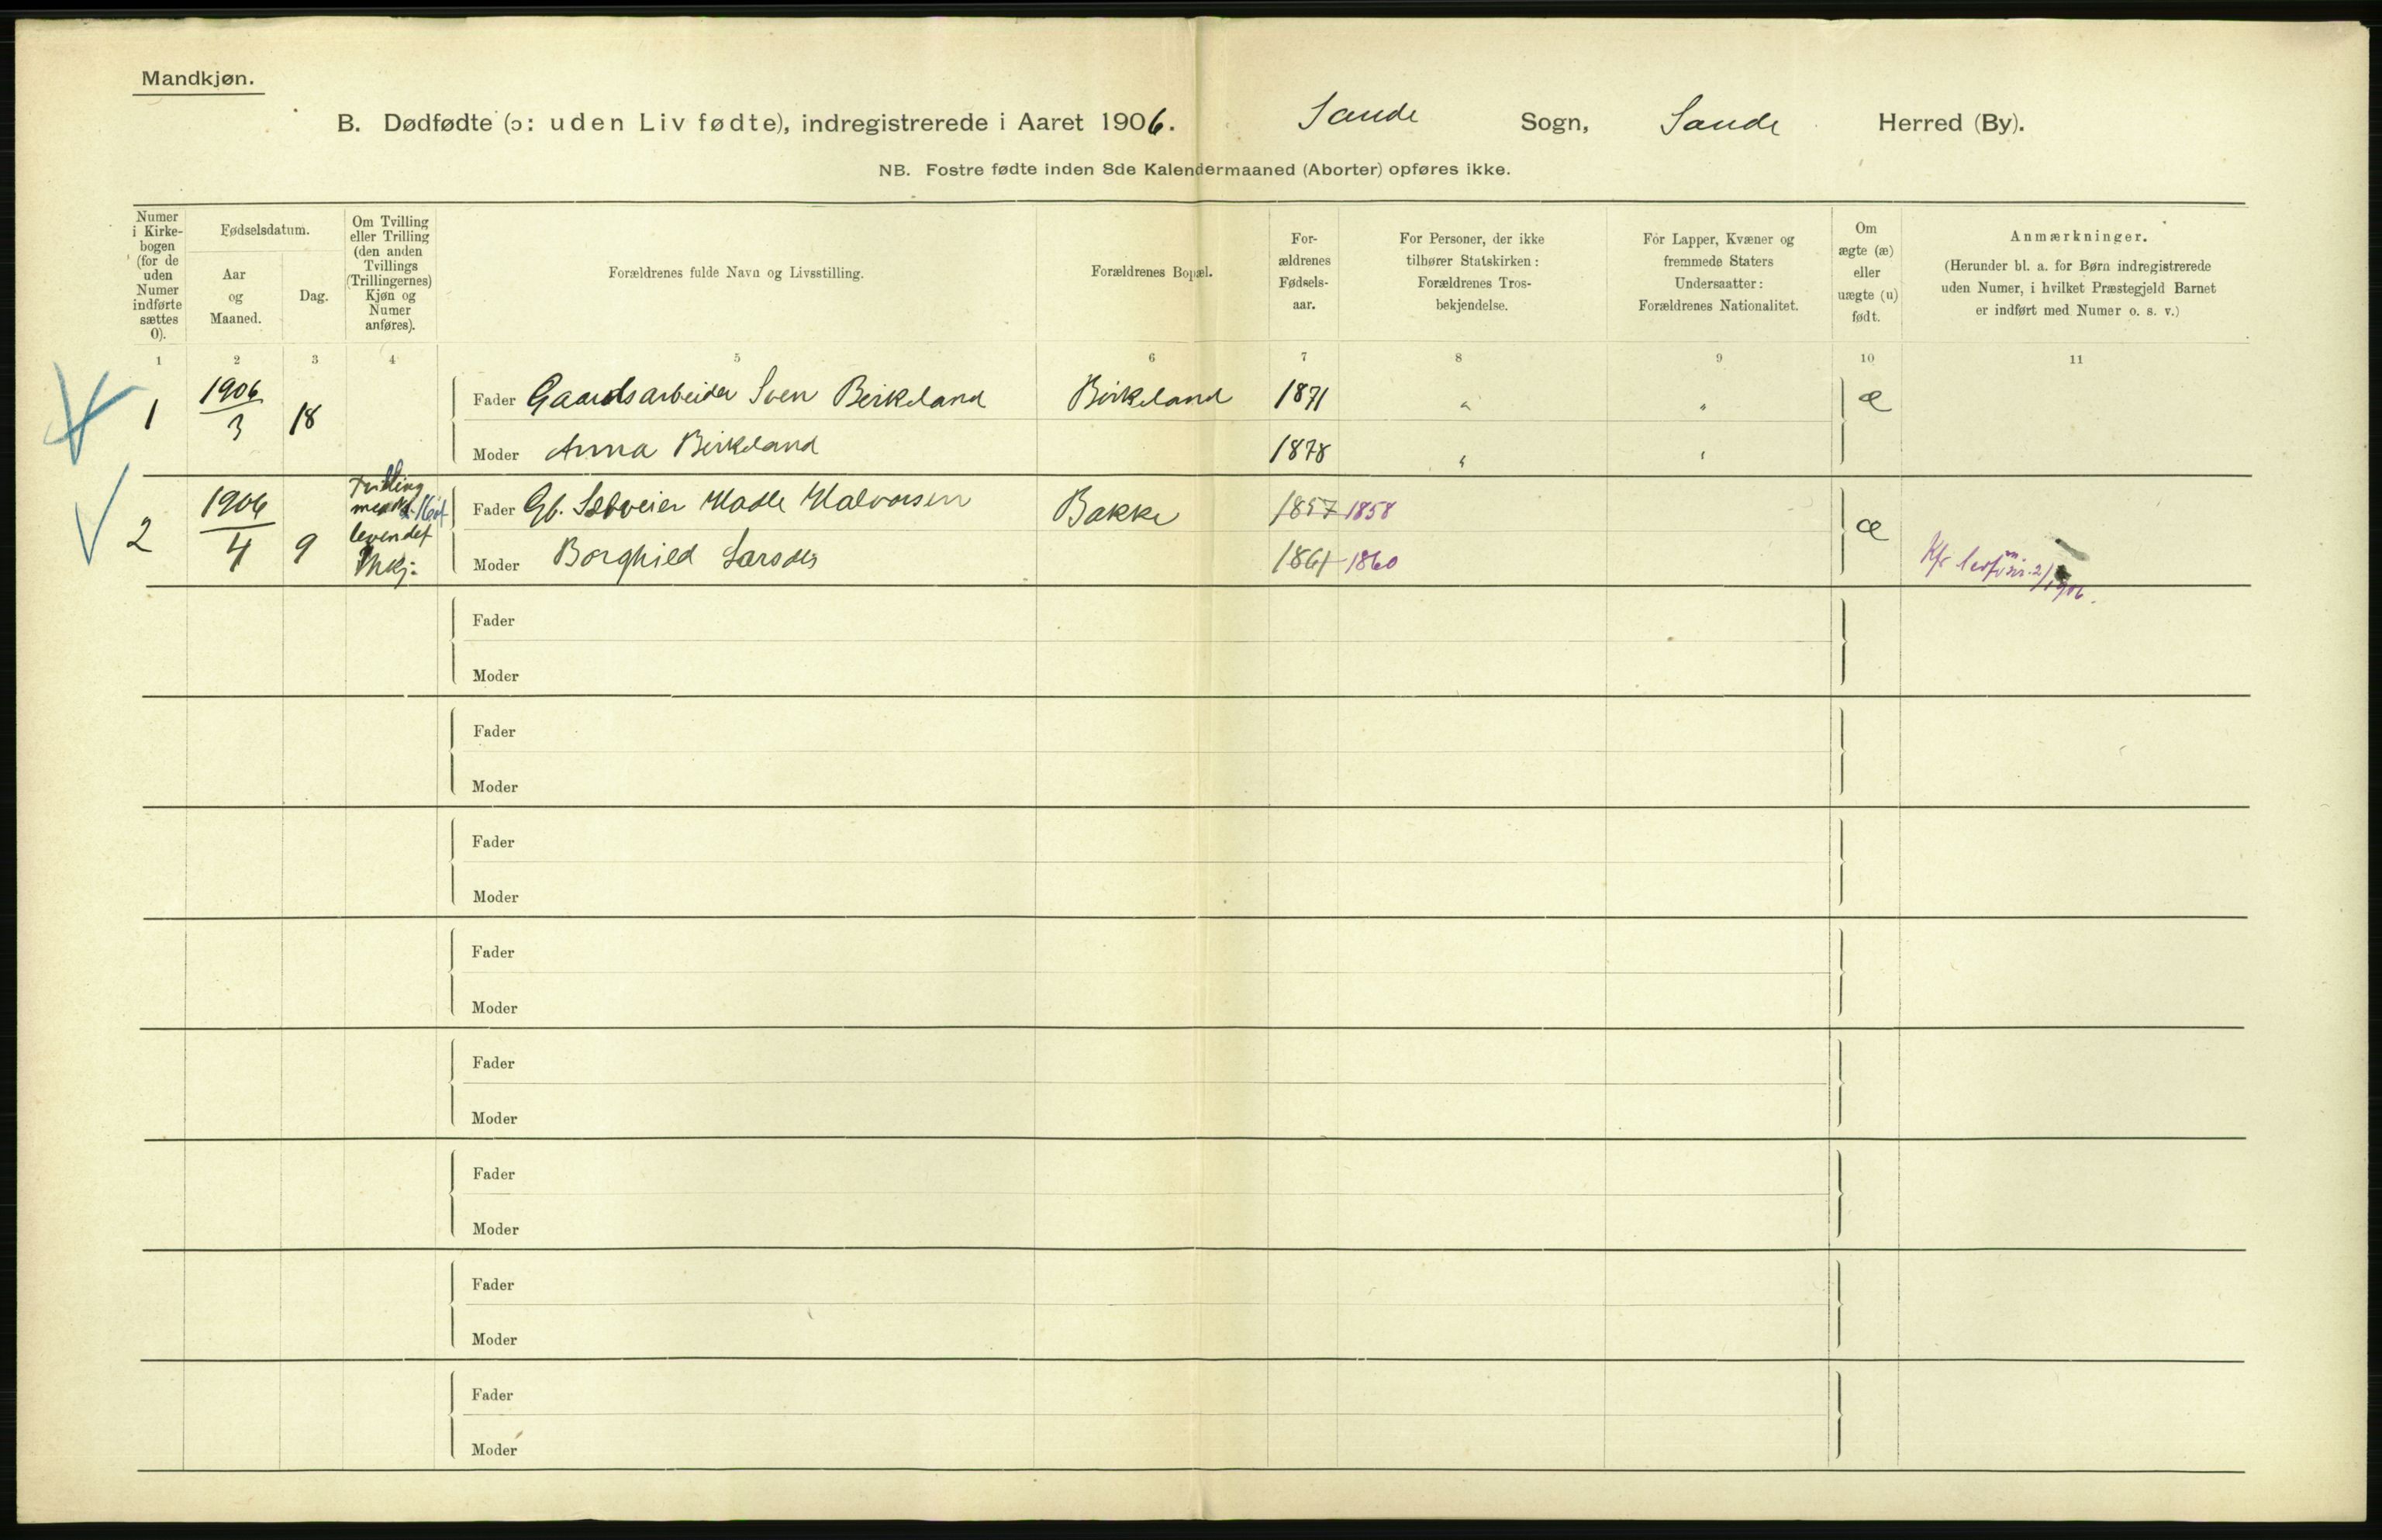 Mandkjøn.
B. Dødfødte (ɔ: uden Liv fødte), indregistrerede i Aaret 1906. Sande Sogn, Sande Herred (By).
NB. Fostre fødte inden 8de Kalendermaaned (Aborter) opføres ikke.
Numer
i Kirke-
bogen
(for de
uden
Numer
indførte
sættes
0).
Fødselsdatum.
Aar
og
Maaned.
Dag.
Om Tvilling
eller Trilling
(den anden
Tvillings
(Trillingernes)
Kjøn og
Numer
anføres).
Forældrenes fulde Navn og Livsstilling.
Forældrenes Bopæl.
For-
ældrenes
Fødsels-
aar.
For Personer, der ikke
tilhører Statskirken:
Forældrenes Tros-
bekjendelse.
For Lapper, Kvæner og
fremmede Staters
Undersaatter:
Forældrenes Nationalitet.
Om
ægte (æ)
eller
uægte (u)
født.
Anmærkninger.
(Herunder bl. a. for Børn indregistrerede
uden Numer, i hvilket Præstegjeld Barnet
er indført med Numer o. s. v.)
1 2 3 4 5 6 7 8 9 10 11
1 1906/3 18 Fader Gaardsarbeider Sven Birkeland Birkeland 1871 " " æ
Moder Anna Birkeland 1878 " "
2 1906/4 9
levendef
Mkj.
Fader Gb. Halvorsen Bakke 1857 1858 æ
Moder Borghild Larsdtr 1861 1860
Kfr 2/1906.
Fader
Moder
Fader
Moder
Fader
Moder
Fader
Moder
Fader
Moder
Fader
Moder
Fader
Moder
Fader
Moder